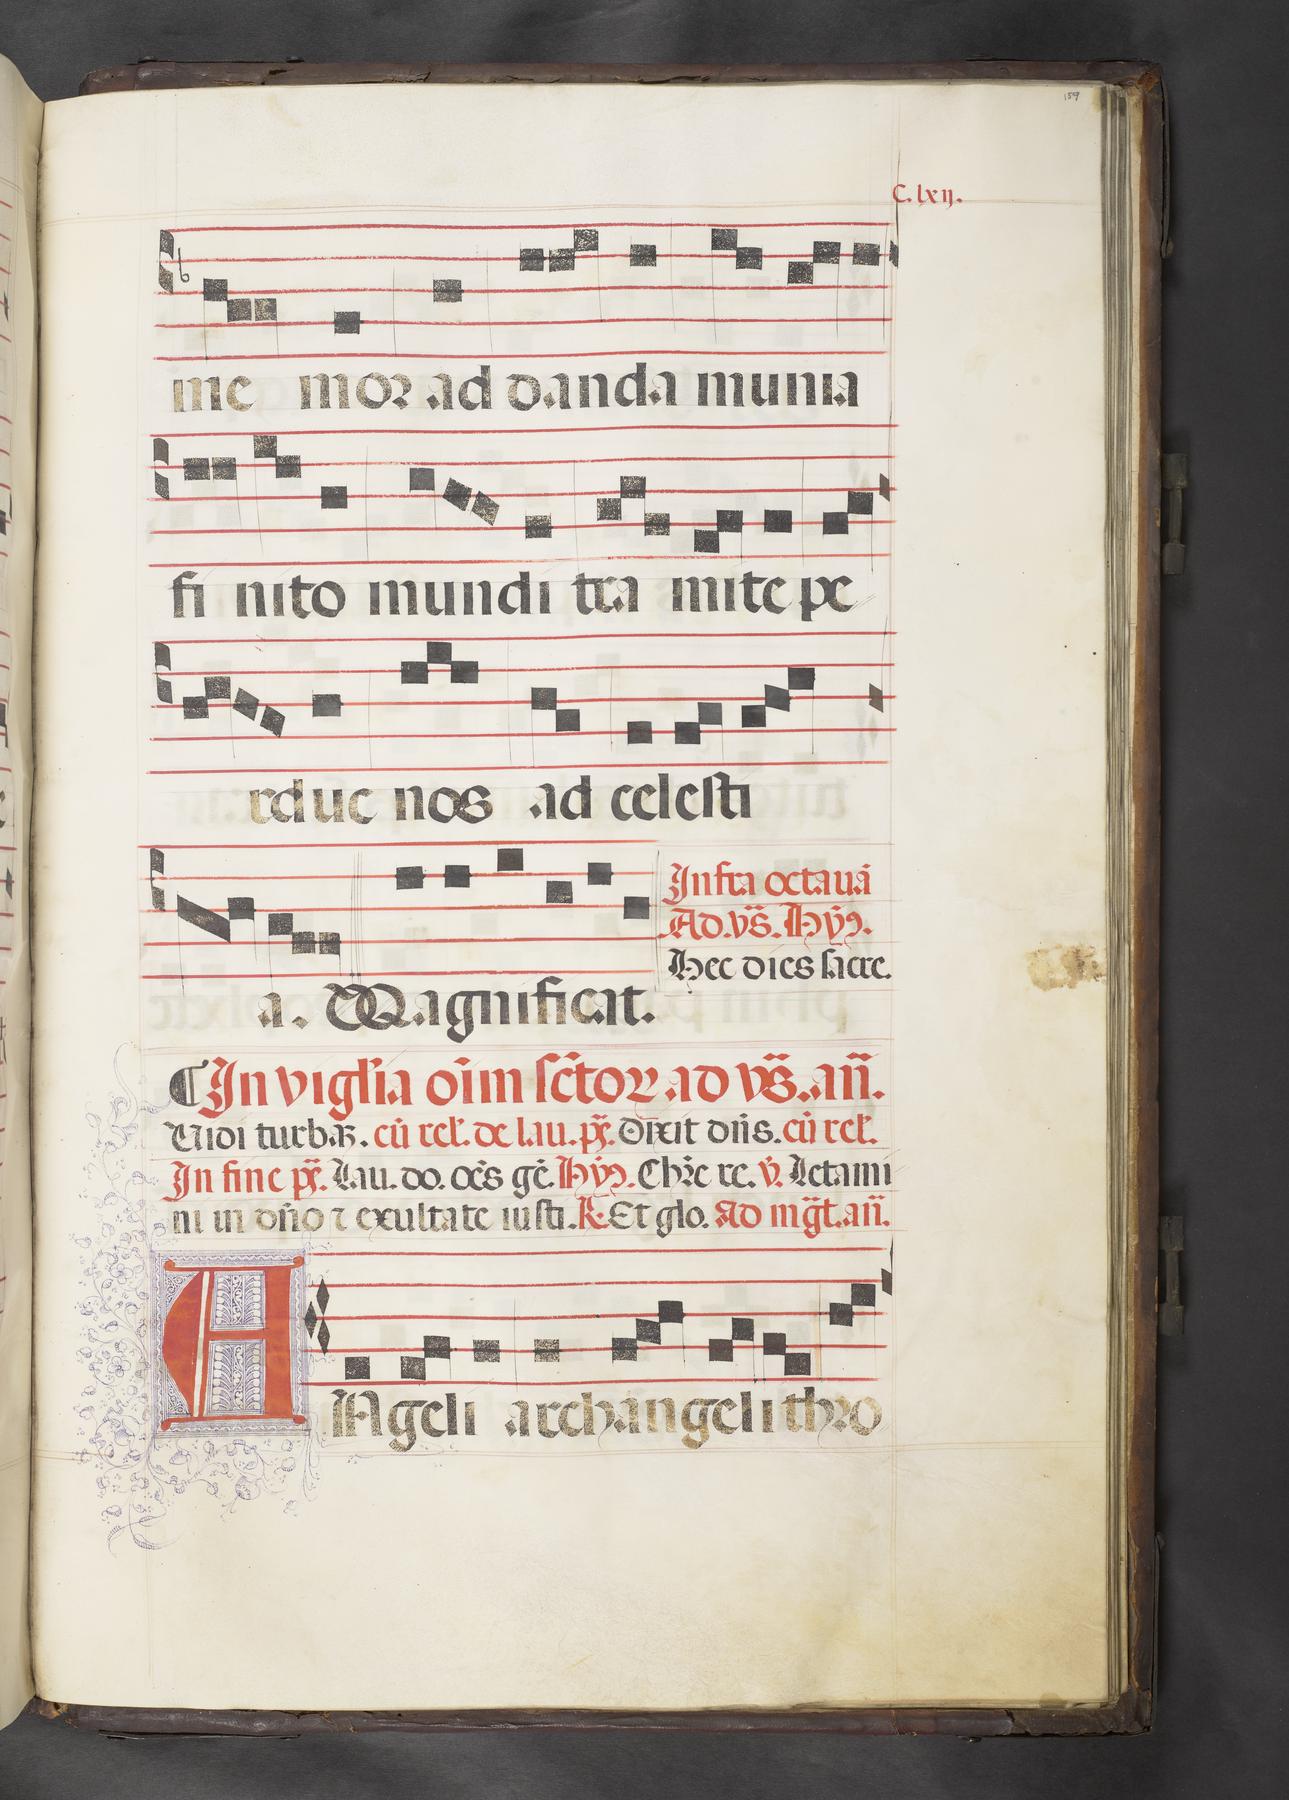 159
C. lxij.
me mor ad danda munia
fi nito mundi tra mite pe
rduc nos ad celesti
a. Magnificat.
Infra octauā
Ad. vs̄. Hȳ.
Hec dies sacre.
In vigl'ia oīm sc̄tor ad vs̄. an̄.
Uidi turbaꝝ. cū rel'. de lau. px̄. Dixit dn̄s. cū rel'.
In fine px̄. Lau. do. oēs gē. Hȳ. Chr̄e re. v̄. Letami
ni in dn̄o ⁊ exultate iusti. R. Et glo. Ad mḡt. an̄.
ANgeli archangeli thro